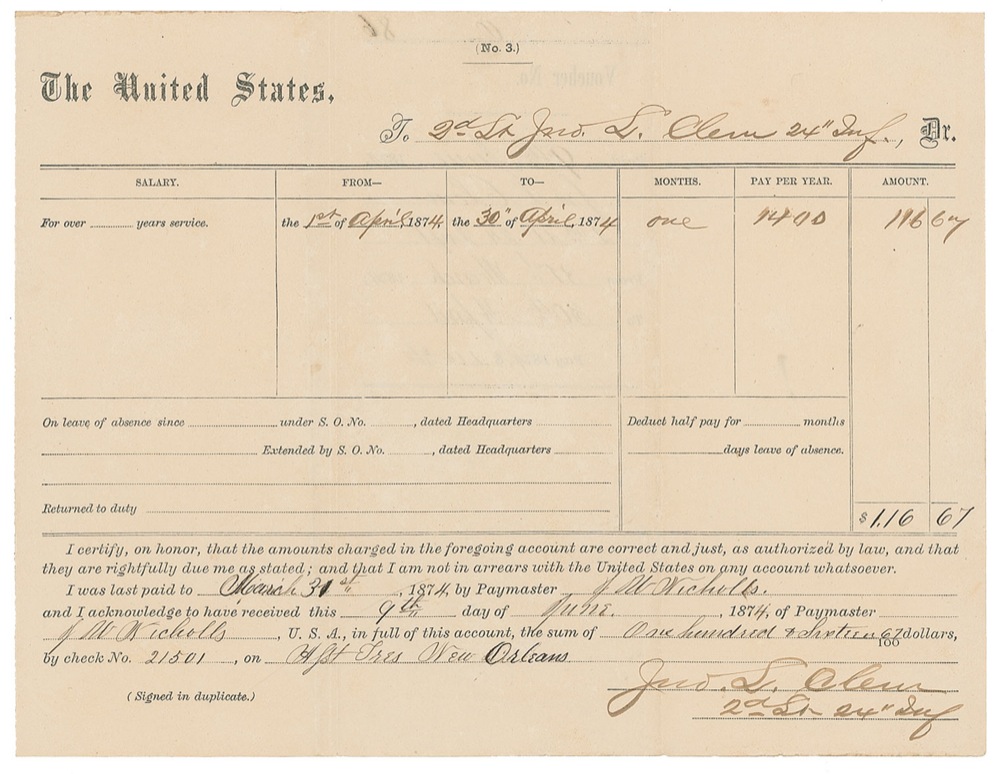 (No. 3.)
The United States,
To 2d Lt Jno. L. Clem 24" Inf., Dr.
SALARY. FROM— TO— MONTHS. PAY PER YEAR. AMOUNT.
For over years service. the 1st of April, 1874, the 30" of April, 1874 one 1400 116 67
On leave of absence since under S. O. No. , dated Headquarters Deduct half pay for months
Extended by S. O. No. , dated Headquarters days leave of absence.
Returned to duty
$ 116 67
I certify, on honor, that the amounts charged in the foregoing account are correct and just, as authorized by law, and that
they are rightfully due me as stated; and that I am not in arrears with the United States on any account whatsoever.
I was last paid to March 31st, 1874, by Paymaster J W Nicholls.
and I acknowledge to have received this 9th day of June, 1874, of Paymaster
J W Nicholls, U. S. A., in full of this account, the sum of One hundred & Sixteen 67/100 dollars,
by check No. 21501, on Asst Tres New Orleans
(Signed in duplicate.)
Jno. L. Clem
2d Lt 24" Inf